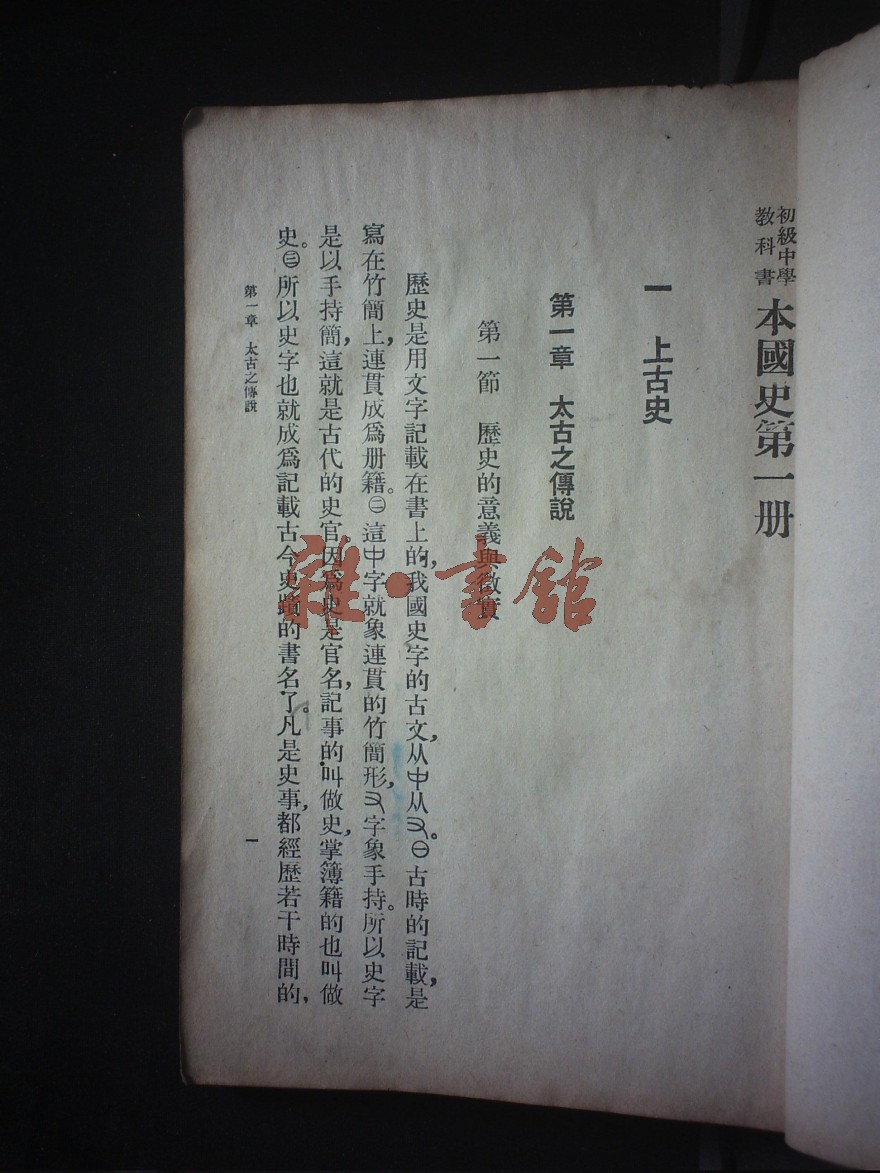 初級中學
教科書
本國史第一册
一 上古史
第一章 太古之傳說
第一節 歷史的意義與徵實
歷史是用文字記載在書上的,我國史字的古文,从中从㕚。㊀古時的記載,是
寫在竹簡上,連貫成爲册籍。㊁這中字就象連貫的竹簡形,字象手持。所以史字
是以手持簡,這就是古代的史官。因爲史是官名,記事的叫做史,掌簿籍的也叫做
史。㊂所以史字也就成爲記載古今史蹟的書名了。凡是史事,都經歷若干時間的,
第一章 太古之傳說
一
雜·書館